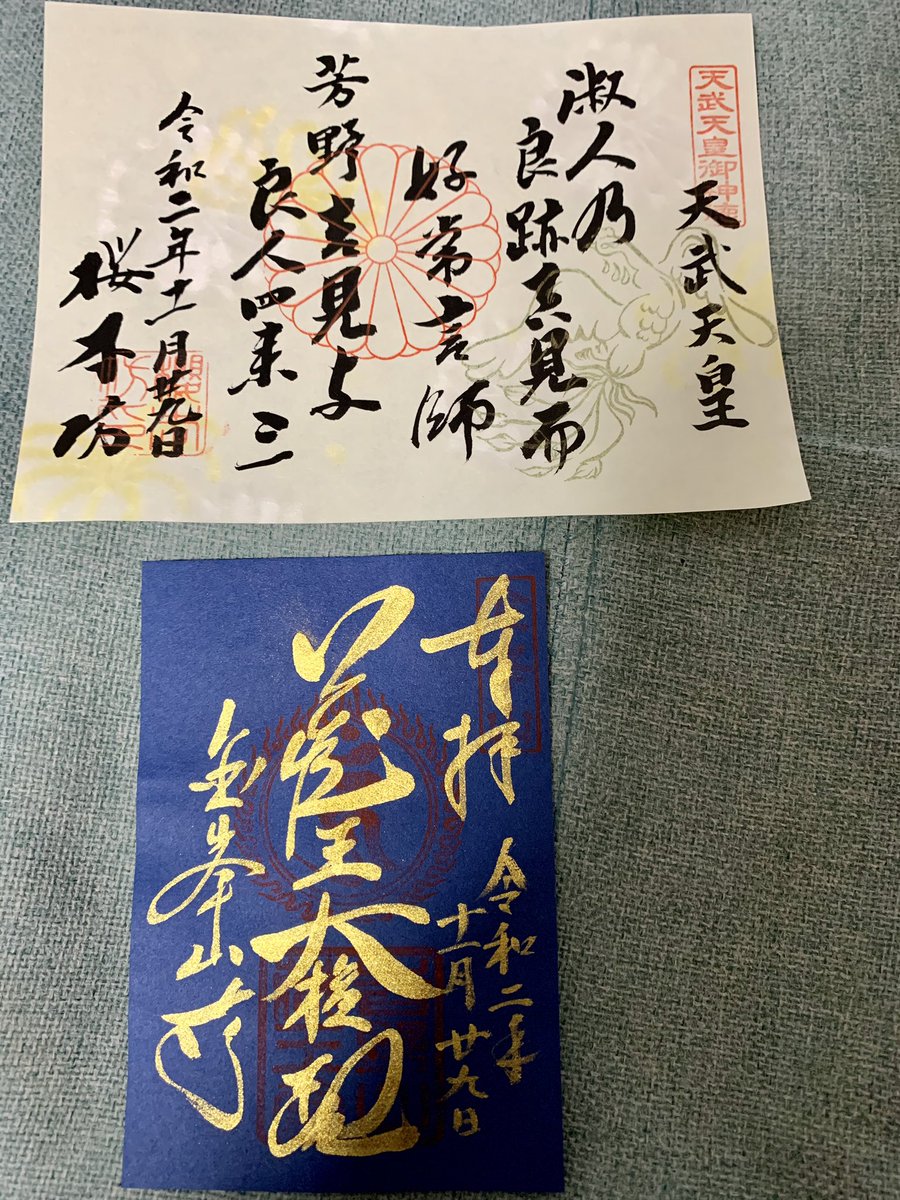 天武天皇御神
天武天皇
淑人乃
良跡吉見而
好常言師
芳野吉見与
良人四来三
令和二年十一月廿九日
桜本坊
奉拝
令和二年
十一月廿九日
蔵王大権現
金峯山寺